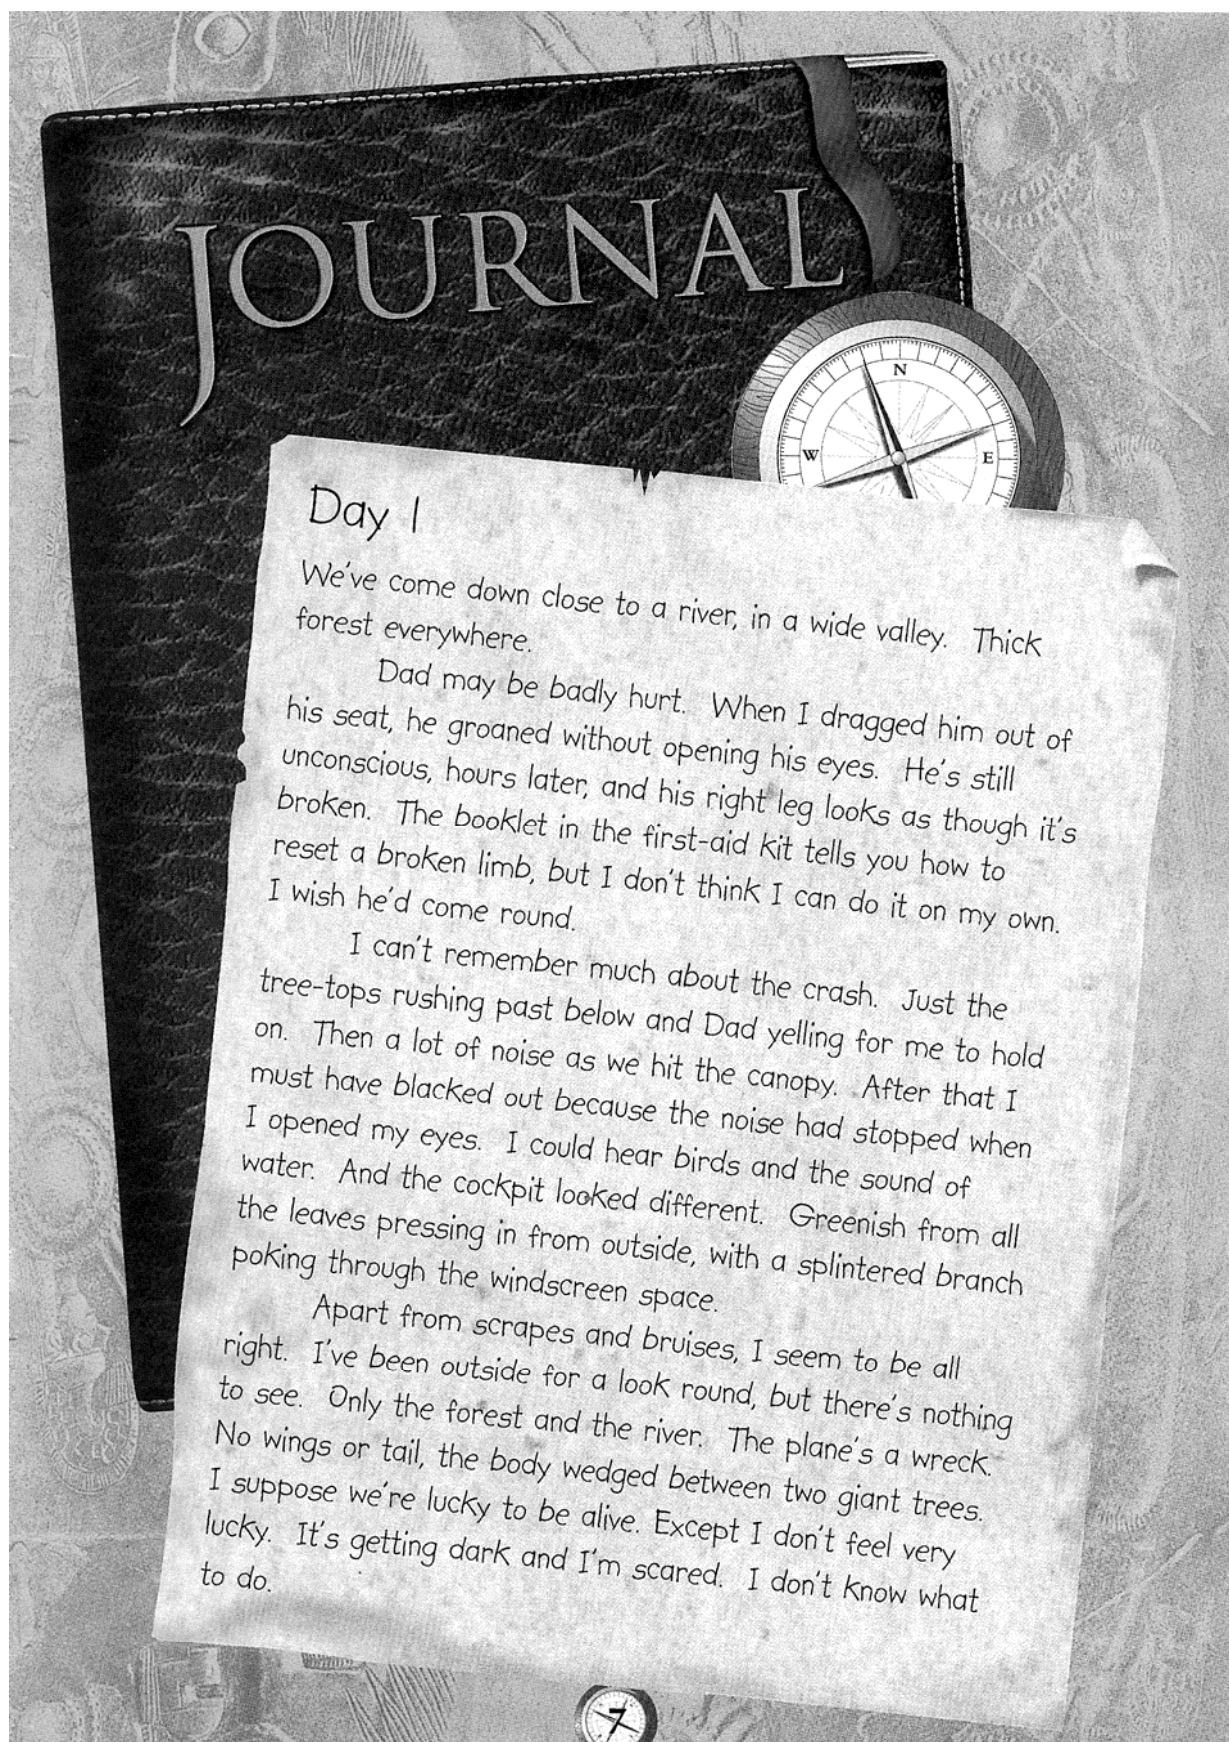 JOURNAL
N
W
E
Day 1
We've come down close to a river, in a wide valley. Thick
forest everywhere.
Dad may be badly hurt. When I dragged him out of
his seat, he groaned without opening his eyes. He's still
unconscious, hours later, and his right leg looks as though it's
broken. The booklet in the first-aid kit tells you how to
reset a broken limb, but I don't think I can do it on my own.
I wish he'd come round.
I can't remember much about the crash. Just the
tree-tops rushing past below and Dad yelling for me to hold
on. Then a lot of noise as we hit the canopy. After that I
must have blacked out because the noise had stopped when
I opened my eyes. I could hear birds and the sound of
water. And the cockpit looked different. Greenish from all
the leaves pressing in from outside, with a splintered branch
poking through the windscreen space.
Apart from scrapes and bruises, I seem to be all
right. I've been outside for a look round, but there's nothing
to see. Only the forest and the river. The plane's a wreck.
No wings or tail, the body wedged between two giant trees.
I suppose we're lucky to be alive. Except I don't feel very
lucky. It's getting dark and I'm scared. I don't know what
to do.
7